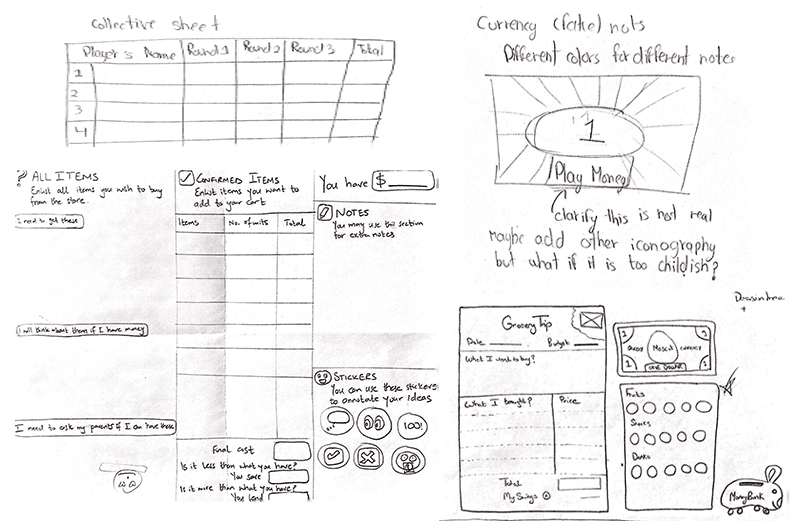 Collective sheet
Player's Name Round 1 Round 2 Round 3 Total
1
2
3
4
Currency (fake) nots
Different colors for different notes
1
Play Money
clarify this is not real
Maybe add other iconography
but what if it is too childish?
? ALL ITEMS
Enlist all items you wish to buy
from the store.
I need to get these
I will think about them if I have money
I need to ask my parents if I can have these
CONFIRMED ITEMS
Enlist items you want to
add to your cart
Items No. of units Total
Final cost
Is it less than what you have?
You save
Is it more than what you have?
You lend
You have $
NOTES
You may use this section
for extra notes
STICKERS
You can use these stickers
to annotate your ideas
100!
Grocery Trip
Date Budget
What I want to buy?
What I bought? Price
Total
My Savings
1 1
Mascot CURRENCY
1 1
Fruits
Drinks
MoneyBank